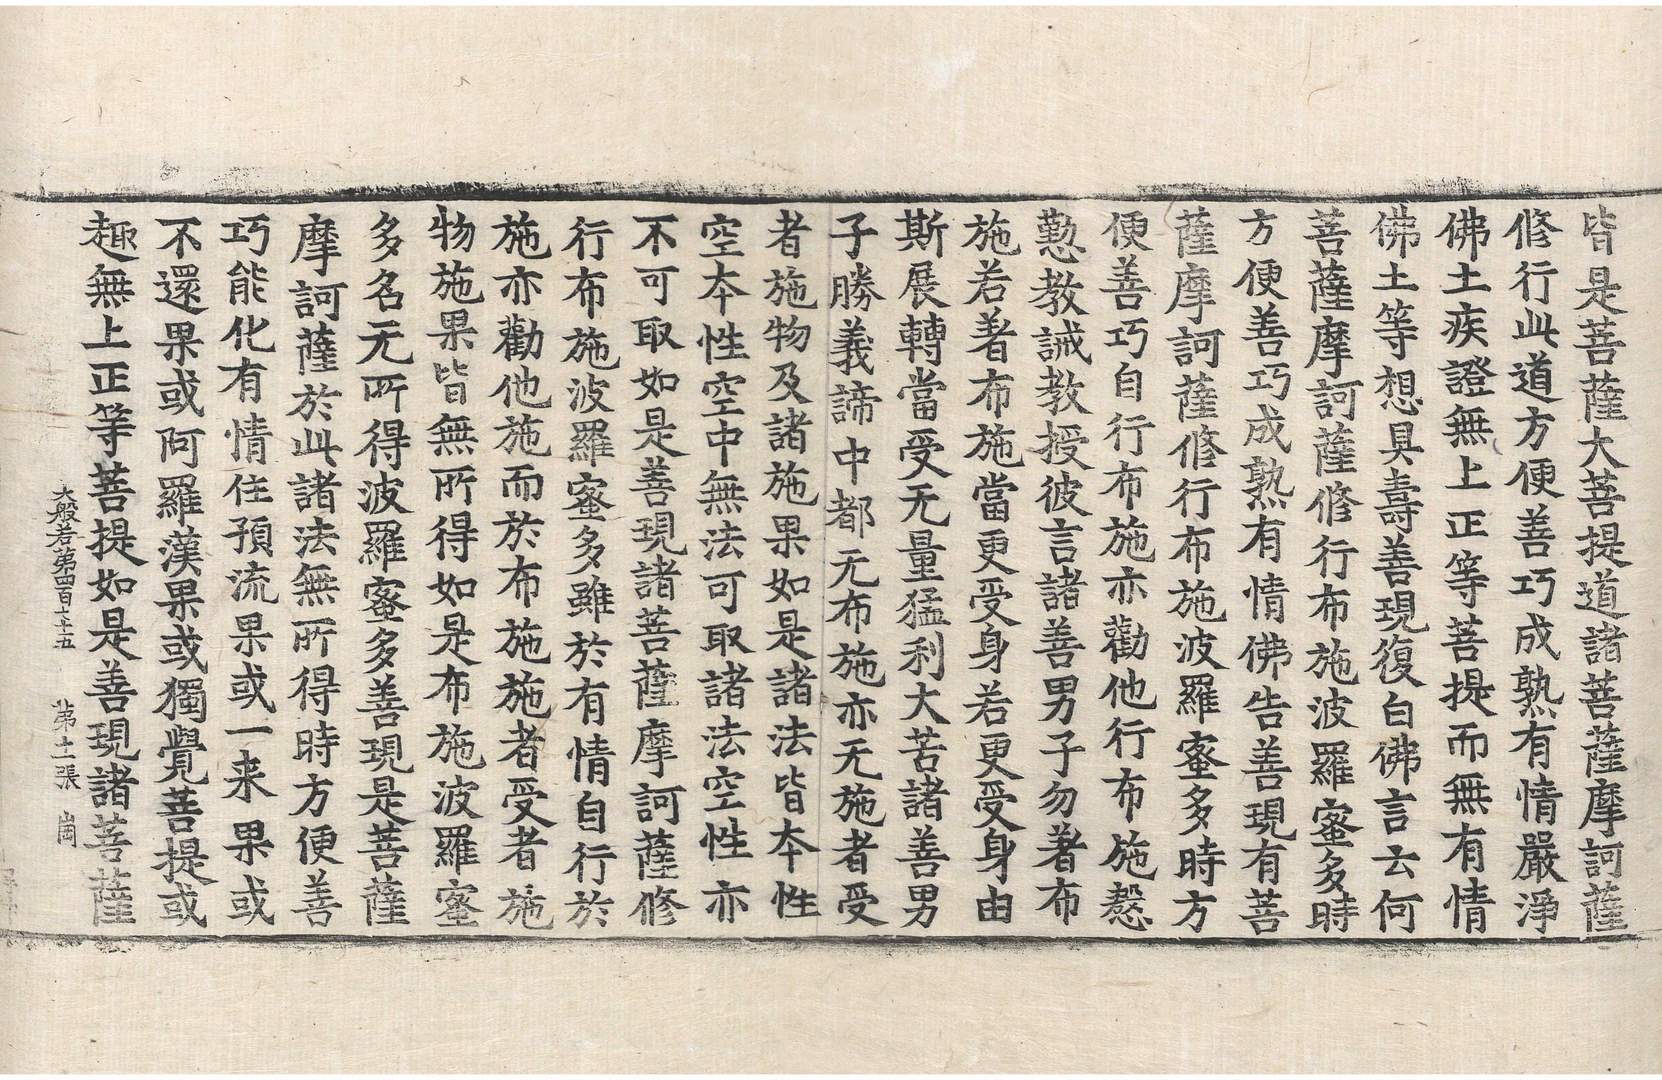 皆是菩薩大菩提道諸菩薩摩訶薩
修行此道方便善巧成熟有情嚴淨
佛土疾證無上正等菩提而無有情
佛土等想具壽善現復白佛言云何
菩薩摩訶薩修行布施波羅蜜多時
方便善巧成熟有情佛告善現有菩
薩摩訶薩修行布施波羅蜜多時方
便善巧自行布施亦勸他行布施慇
懃教誡教授彼言諸善男子勿著布
施若著布施當更受身若更受身由
斯展轉當受无量猛利大苦諸善男
子勝義諦中都无布施亦无施者受
者施物及諸施果如是諸法皆本性
空本性空中無法可取諸法空性亦
不可取如是善現諸菩薩摩訶薩修
行布施波羅蜜多雖於有情自行於
施亦勸他施而於布施施者受者施
物施果皆無所得如是布施波羅蜜
多名无所得波羅蜜多善現是菩薩
摩訶薩於此諸法無所得時方便善
巧能化有情住預流果或一来果或
不還果或阿羅漢果或獨覺菩提或
趣無上正等菩提如是善現諸菩薩
大般若第四百七十五 第十二張 崗